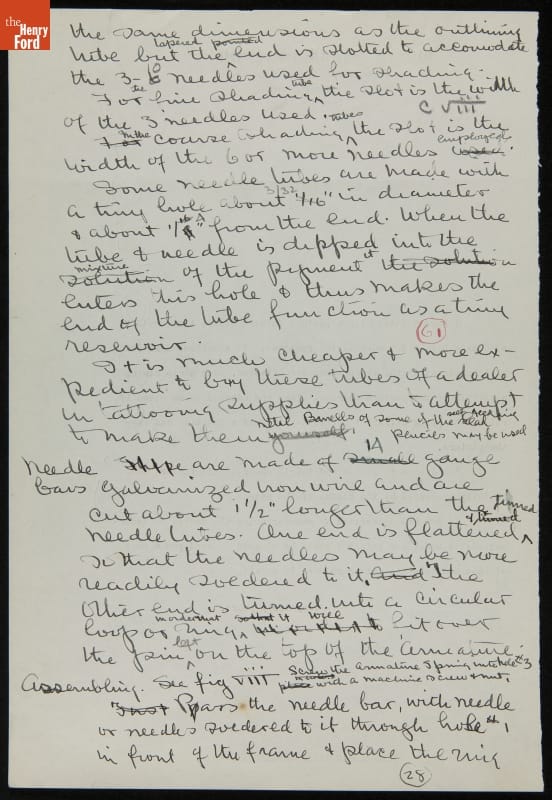 the Henry Ford
the same dimensions as the outlining
tapered pointed
tube but the end is slotted to accomodate
the 3-8 needles used for shading.
the tube
For fine shading the slot is the width
of the 3 needles used. C VIII
In the tubes
For coarse shading the slot is the
employed
width of the 6 or more needles used.
Some needle tubes are made with
3/32
a tiny hole about 1/16" in diameter
& about " from the end. When the
tube & needle is dipped into the
mixture it
solution of the pigment the solution
enters this hole & thus makes the
end of the tube function as a tiny
61
reservoir.
It is much cheaper & more ex-
pedient to buy these tubes of a dealer
in tattooing supplies than to attempt
the Barrels of some of the lead
to make them yourself. Pencils may be used
14
Needle are made of small gauge
bars galvanized iron wire and are
cut about 1 1/2" longer than the
& tinned
needle tubes. One end is flattened
so that the needles may be more
readily soldered to it. And the
other end is turned into a circular
in order that so that it will
loop or ring fit over
left
the pin on the top of the armature.
Screw the armature spring into hole #3
Assembling. See fig VIII place with a machine screw & nut.
First Pass the needle bar, with needle
or needles soldered to it through hole #1
in front of the frame & place the ring
28